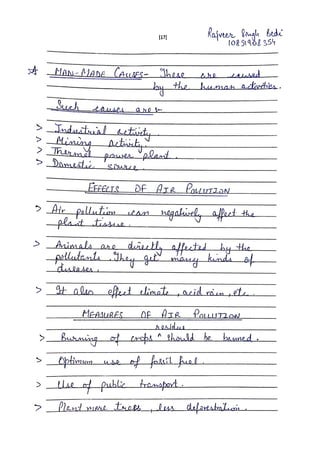 [17]
Rajveer Singh Bedi
10851908354
MAN-MADE CAUSES- These are caused
by the human activities.
Such causes are :-
> Industrial activity.
> Mining Activity.
> Thermal power plant.
> Domestic source.
EFFECTS OF AIR POLLUTION
> Air pollution can negatively affect the
plant tissue.
> Animals are directly affected by the
pollutants. They get many kinds of
diseases.
> It also effect climate, acid rain, etc.
MEASURES OF AIR POLLUTION
residue
> Burning of crops ^ should be banned.
> Optimum use of fossil fuel.
> Use of public transport.
> Plant more trees, less deforestation.